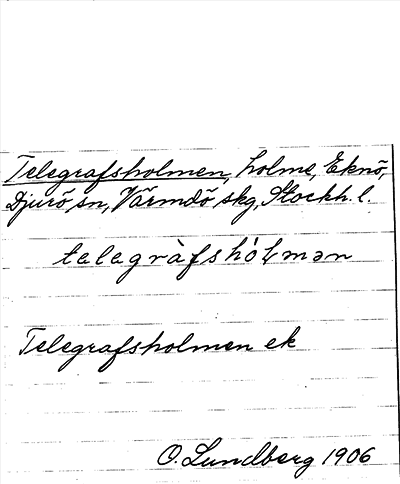 Telegrafsholmen, holme, Eknö,
Djurö sn, Värmdö skg, Stockh. l.
telegràfshólmən
Telegrafsholmen ek
O. Lundberg 1906